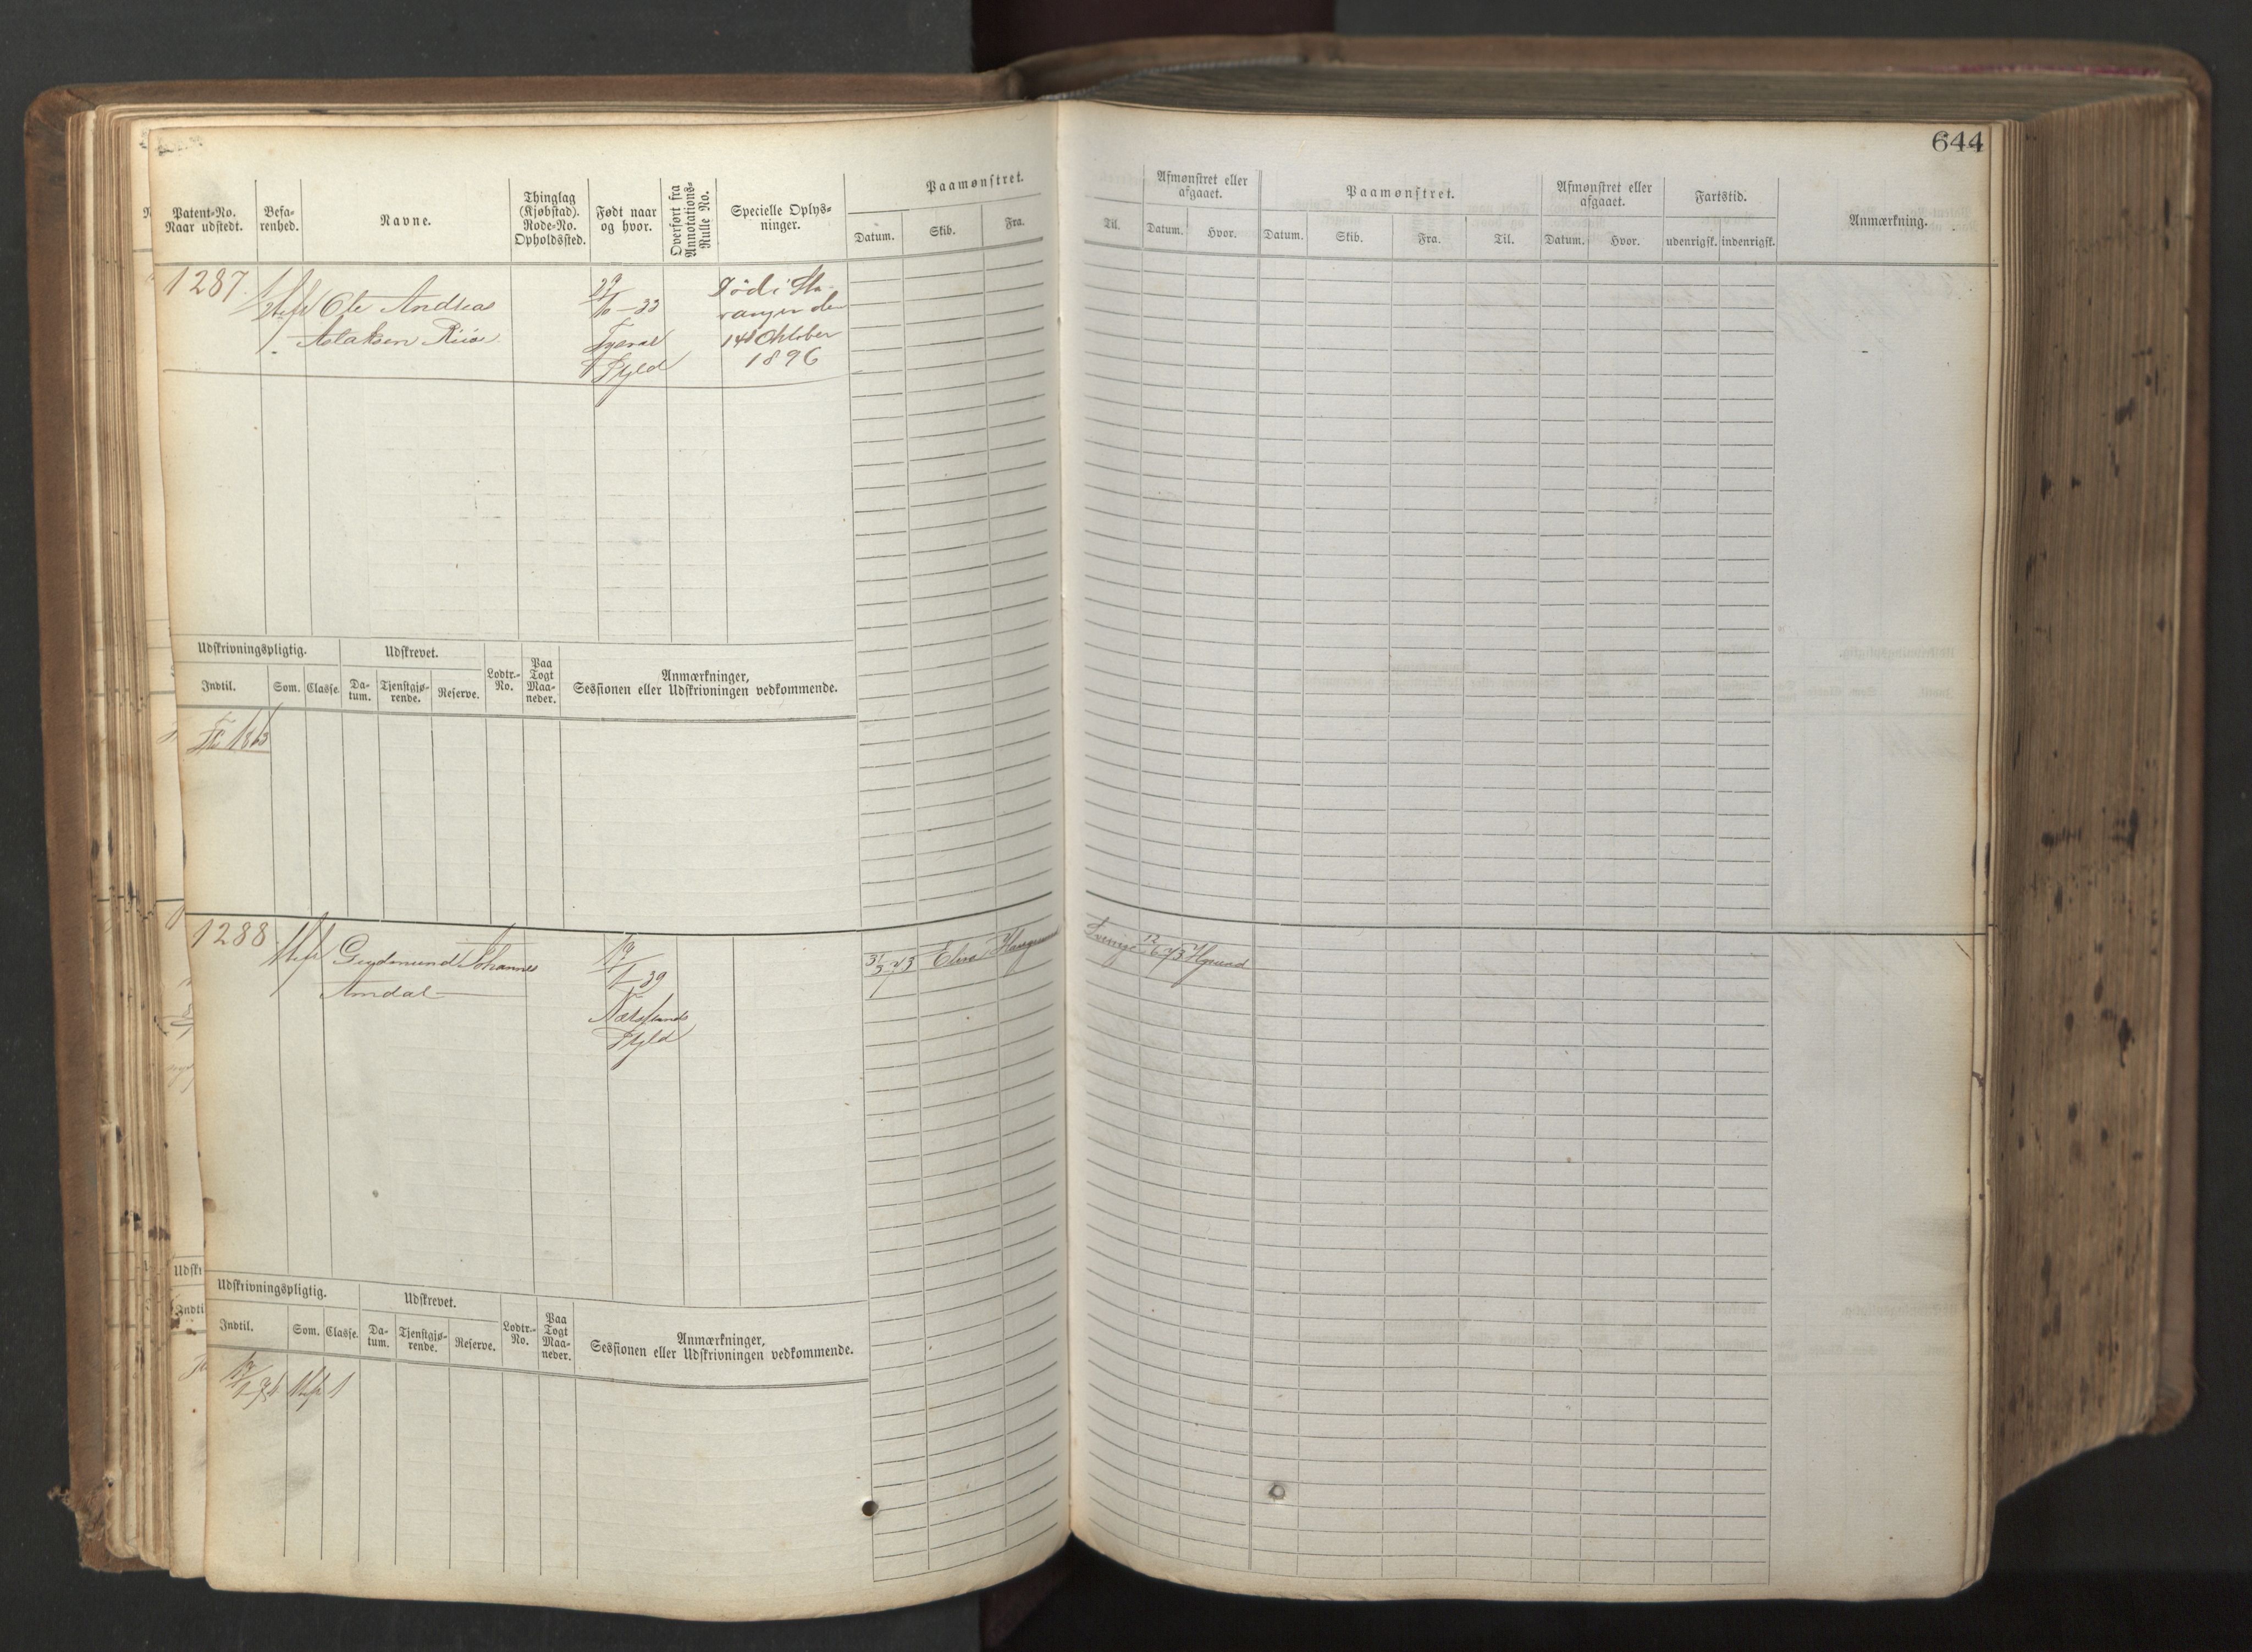 644
Patent-No. Naar udstedt.
Befarenhed.
Navne.
Thinglag (Kjøbstad). Rode-No. Opholdssted.
Født naar og hvor.
Overført fra Annotations-Rulle No.
Specielle Oplysninger.
Paamønstret.
Datum.
Skib.
Fra.
Til.
Afmønstret eller afgaaet.
Datum.
Hvor.
Paamønstret.
Datum.
Skib.
Fra.
Til.
Afmønstret eller afgaaet.
Datum.
Hvor.
Fartstid.
udenrigsk.
indenrigsk.
Anmærkning.
1287
Ole Andreas
Aslaksen
29/10-33
Død i Sta-
vanger den
14 Oktober
1896
Udskrivningspligtig.
Udskrevet.
Lodtr.-No.
Paa Togt Maaneder.
Anmærkninger,
Sessionen eller Udskrivningen vedkommende.
Indtil.
Som.
Classe.
Datum.
Tjenstgjørende.
Reserve.
1288
Gudmund Johannes
Amdal
19/1-39
31/3 73
Sverige
Udskrivningspligtig.
Udskrevet.
Lodtr.-No.
Paa Togt Maaneder.
Anmærkninger,
Sessionen eller Udskrivningen vedkommende.
Indtil.
Som.
Classe.
Datum.
Tjenstgjørende.
Reserve.
1